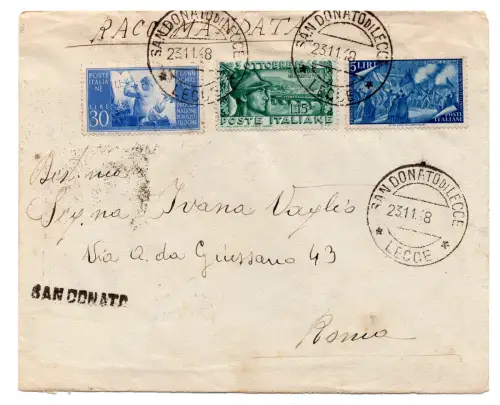 RACCOMANDATA
SAN DONATO DI LECCE
23.11.48
LECCE
SAN DONATO DI LECCE
23.11.48
LECCE
POSTE ITALIANE
LIRE 30
OTTOBRE
L.15
POSTE ITALIANE
5 LIRE
POSTE ITALIANE
Sig.na Ivana Vaglio
Via A. da Giussano 43
Roma
SAN DONATO DI LECCE
23.11.48
LECCE
SAN DONATO